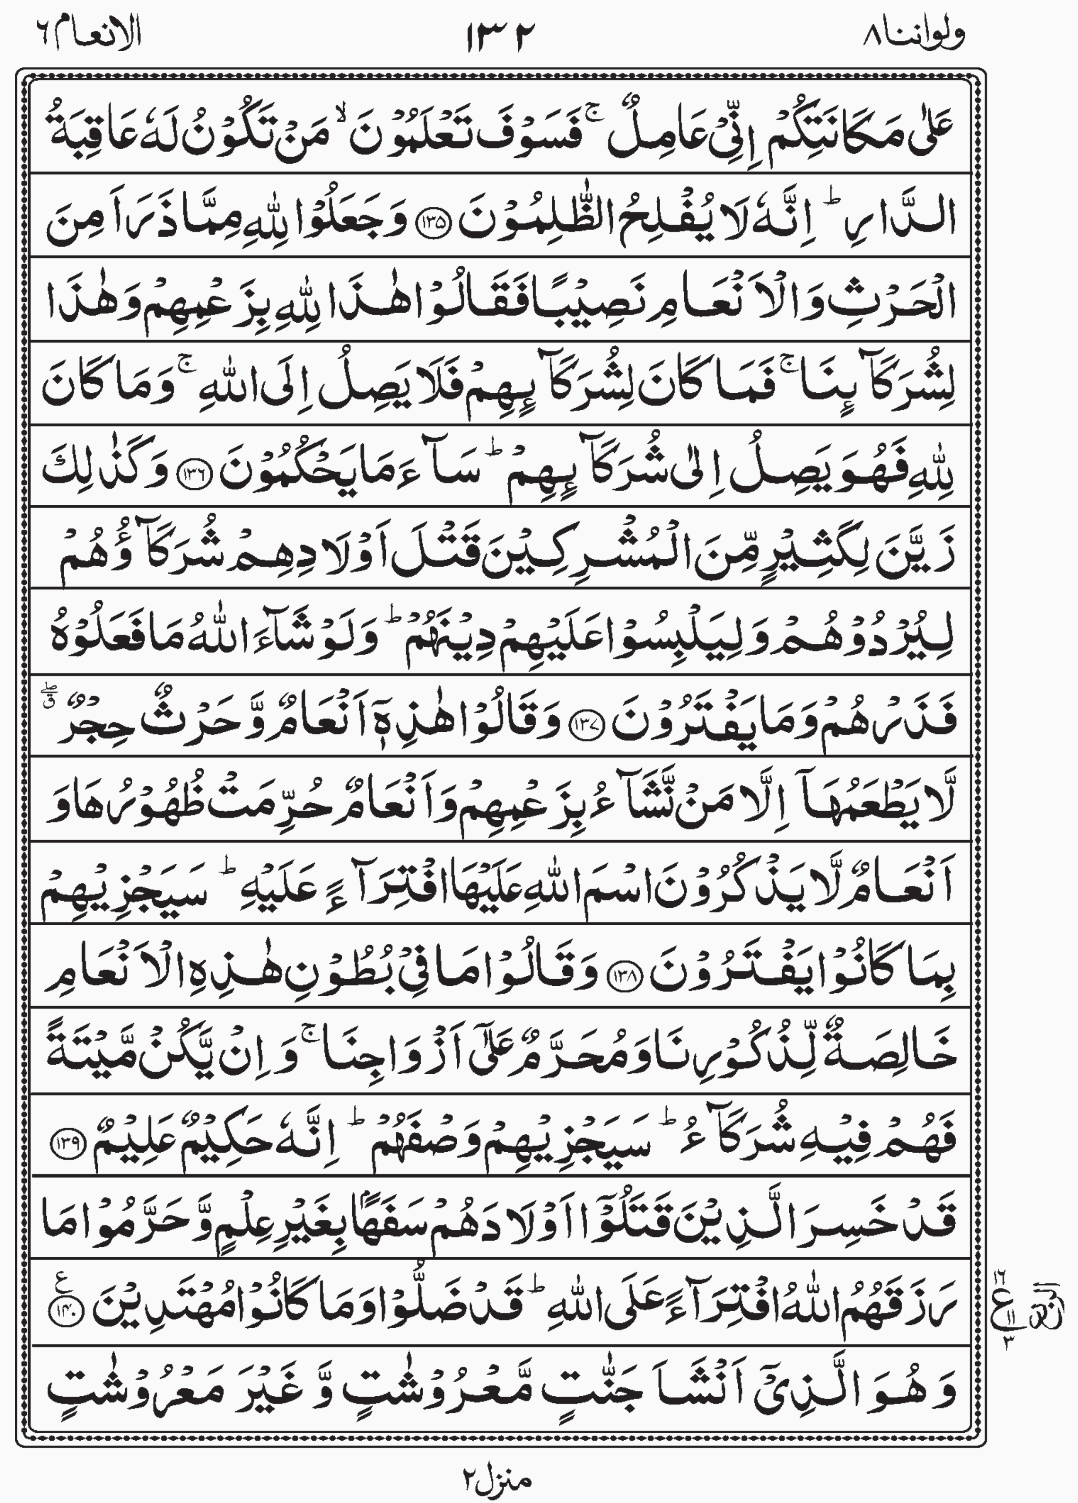 ولواننا ٨
١٣٢
الانعام ٦
عَلٰى مَكَانَتِكُمْ اِنِّىْ عَامِلٌ ۚ فَسَوْفَ تَعْلَمُوْنَ ۙ مَنْ تَكُوْنُ لَهٗ عَاقِبَةُ
الدَّارِ ؕ اِنَّهٗ لَا يُفْلِحُ الظّٰلِمُوْنَ ﴿۱۳۵﴾ وَجَعَلُوْا لِلّٰهِ مِمَّا ذَرَاَ مِنَ
الْحَرْثِ وَالْاَنْعَامِ نَصِيْبًا فَقَالُوْا هٰذَا لِلّٰهِ بِزَعْمِهِمْ وَهٰذَا
لِشُرَكَآئِنَا ۚ فَمَا كَانَ لِشُرَكَآئِهِمْ فَلَا يَصِلُ اِلَى اللّٰهِ ۚ وَمَا كَانَ
لِلّٰهِ فَهُوَ يَصِلُ اِلٰى شُرَكَآئِهِمْ ؕ سَآءَ مَا يَحْكُمُوْنَ ﴿۱۳۶﴾ وَكَذٰلِكَ
زَيَّنَ لِكَثِيْرٍ مِّنَ الْمُشْرِكِيْنَ قَتْلَ اَوْلَادِهِمْ شُرَكَآؤُهُمْ
لِيُرْدُوْهُمْ وَلِيَلْبِسُوْا عَلَيْهِمْ دِيْنَهُمْ ؕ وَلَوْ شَآءَ اللّٰهُ مَا فَعَلُوْهُ
فَذَرْهُمْ وَمَا يَفْتَرُوْنَ ﴿۱۳۷﴾ وَقَالُوْا هٰذِهٖۤ اَنْعَامٌ وَّحَرْثٌ حِجْرٌ ۖۗ
لَّا يَطْعَمُهَاۤ اِلَّا مَنْ نَّشَآءُ بِزَعْمِهِمْ وَاَنْعَامٌ حُرِّمَتْ ظُهُوْرُهَا وَ
اَنْعَامٌ لَّا يَذْكُرُوْنَ اسْمَ اللّٰهِ عَلَيْهَا افْتِرَآءً عَلَيْهِ ؕ سَيَجْزِيْهِمْ
بِمَا كَانُوْا يَفْتَرُوْنَ ﴿۱۳۸﴾ وَقَالُوْا مَا فِىْ بُطُوْنِ هٰذِهِ الْاَنْعَامِ
خَالِصَةٌ لِّذُكُوْرِنَا وَمُحَرَّمٌ عَلٰٓى اَزْوَاجِنَا ۚ وَاِنْ يَّكُنْ مَّيْتَةً
فَهُمْ فِيْهِ شُرَكَآءُ ؕ سَيَجْزِيْهِمْ وَصْفَهُمْ ؕ اِنَّهٗ حَكِيْمٌ عَلِيْمٌ ﴿۱۳۹﴾
قَدْ خَسِرَ الَّذِيْنَ قَتَلُوْۤا اَوْلَادَهُمْ سَفَهًاۢ بِغَيْرِ عِلْمٍ وَّحَرَّمُوْا مَا
رَزَقَهُمُ اللّٰهُ افْتِرَآءً عَلَى اللّٰهِ ؕ قَدْ ضَلُّوْا وَمَا كَانُوْا مُهْتَدِيْنَ ﴿۱۴۰﴾ ع
١٦ ع ١١ ٣ الربع
وَهُوَ الَّذِىْۤ اَنْشَاَ جَنّٰتٍ مَّعْرُوْشٰتٍ وَّ غَيْرَ مَعْرُوْشٰتٍ
منزل ٢